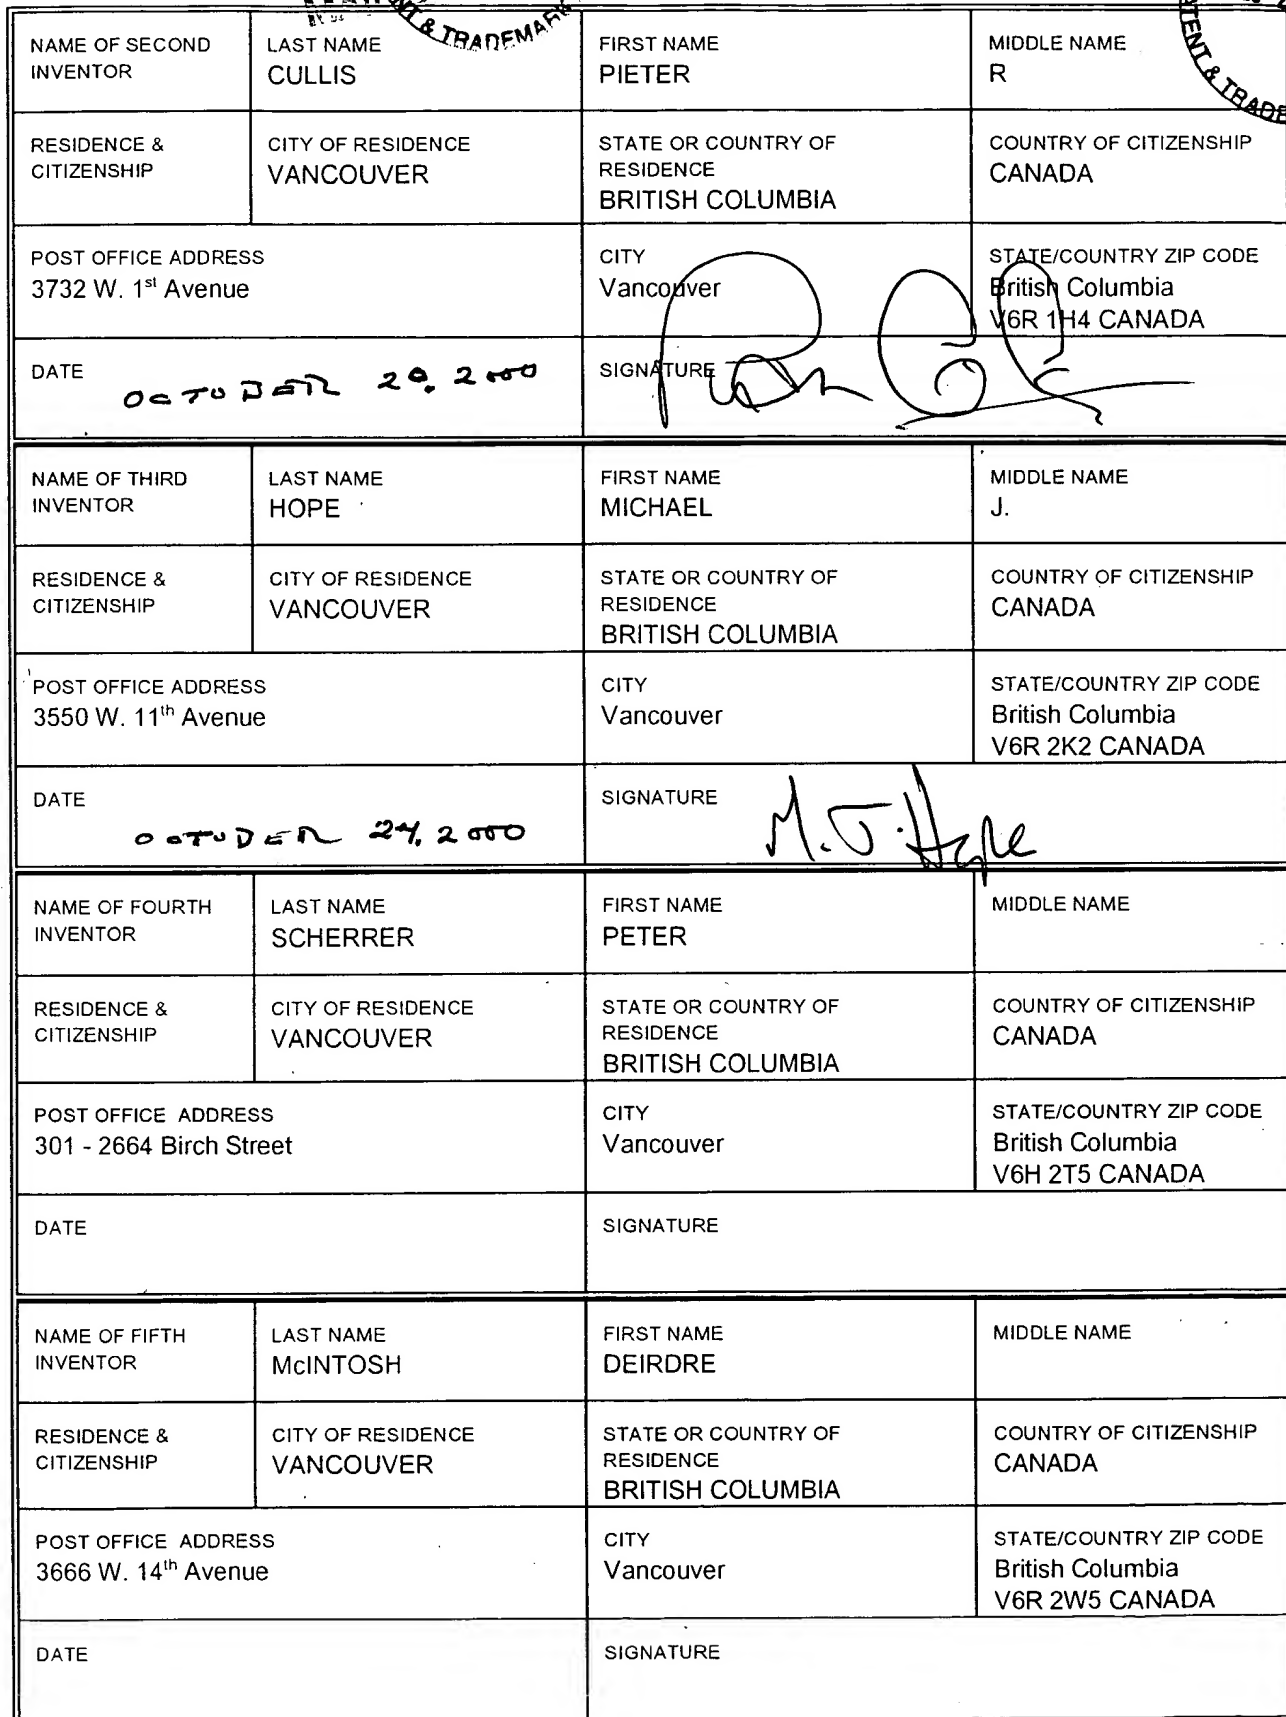 & TRADEMARK
TENT & TRADE
NAME OF SECOND INVENTOR
LAST NAME
CULLIS
FIRST NAME
PIETER
MIDDLE NAME
R
RESIDENCE & CITIZENSHIP
CITY OF RESIDENCE
VANCOUVER
STATE OR COUNTRY OF RESIDENCE
BRITISH COLUMBIA
COUNTRY OF CITIZENSHIP
CANADA
POST OFFICE ADDRESS
3732 W. 1st Avenue
CITY
Vancouver
STATE/COUNTRY ZIP CODE
British Columbia
V6R 1H4 CANADA
DATE
OCTOBER 20, 2000
SIGNATURE
NAME OF THIRD INVENTOR
LAST NAME
HOPE
FIRST NAME
MICHAEL
MIDDLE NAME
J.
RESIDENCE & CITIZENSHIP
CITY OF RESIDENCE
VANCOUVER
STATE OR COUNTRY OF RESIDENCE
BRITISH COLUMBIA
COUNTRY OF CITIZENSHIP
CANADA
POST OFFICE ADDRESS
3550 W. 11th Avenue
CITY
Vancouver
STATE/COUNTRY ZIP CODE
British Columbia
V6R 2K2 CANADA
DATE
OCTOBER 24, 2000
SIGNATURE
M.J. Hope
NAME OF FOURTH INVENTOR
LAST NAME
SCHERRER
FIRST NAME
PETER
MIDDLE NAME
RESIDENCE & CITIZENSHIP
CITY OF RESIDENCE
VANCOUVER
STATE OR COUNTRY OF RESIDENCE
BRITISH COLUMBIA
COUNTRY OF CITIZENSHIP
CANADA
POST OFFICE ADDRESS
301 - 2664 Birch Street
CITY
Vancouver
STATE/COUNTRY ZIP CODE
British Columbia
V6H 2T5 CANADA
DATE
SIGNATURE
NAME OF FIFTH INVENTOR
LAST NAME
McINTOSH
FIRST NAME
DEIRDRE
MIDDLE NAME
RESIDENCE & CITIZENSHIP
CITY OF RESIDENCE
VANCOUVER
STATE OR COUNTRY OF RESIDENCE
BRITISH COLUMBIA
COUNTRY OF CITIZENSHIP
CANADA
POST OFFICE ADDRESS
3666 W. 14th Avenue
CITY
Vancouver
STATE/COUNTRY ZIP CODE
British Columbia
V6R 2W5 CANADA
DATE
SIGNATURE